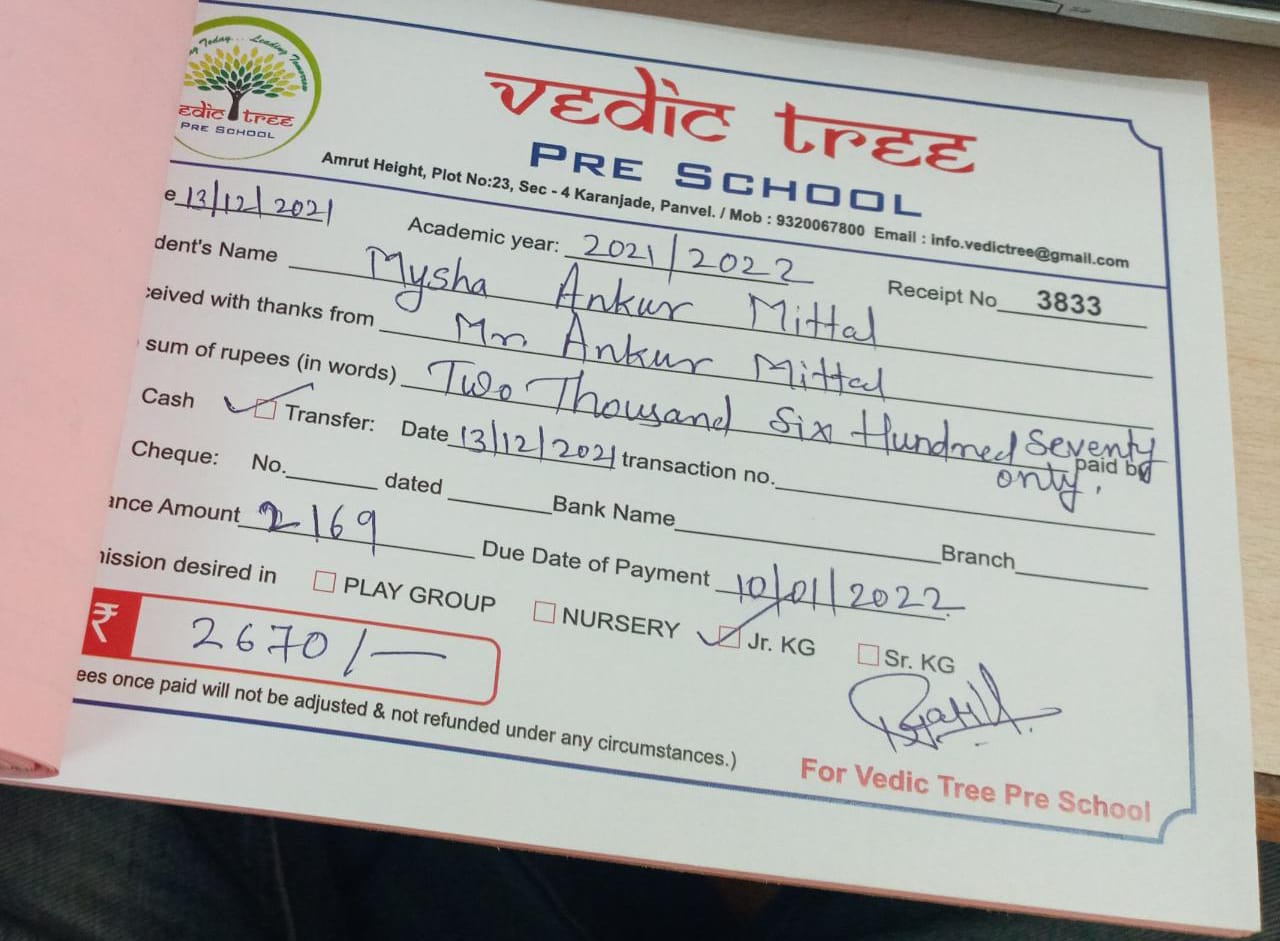 ng Today... Leading Tomorrow
edic tree
PRE SCHOOL
vedic tree
PRE SCHOOL
Amrut Height, Plot No:23, Sec - 4 Karanjade, Panvel. / Mob : 9320067800 Email : info.vedictree@gmail.com
e 13/12/2021 Academic year: 2021/2022 Receipt No 3833
dent's Name Mysha Ankur Mittal
ceived with thanks from Mr. Ankur Mittal
sum of rupees (in words) Two Thousand Six Hundred Seventy only. paid by
Cash Transfer: Date 13/12/2021 transaction no.
Cheque: No. dated Bank Name Branch
ance Amount 2169 Due Date of Payment 10/01/2022
nission desired in PLAY GROUP NURSERY Jr. KG Sr. KG
₹ 2670/-
ees once paid will not be adjusted & not refunded under any circumstances.)
For Vedic Tree Pre School